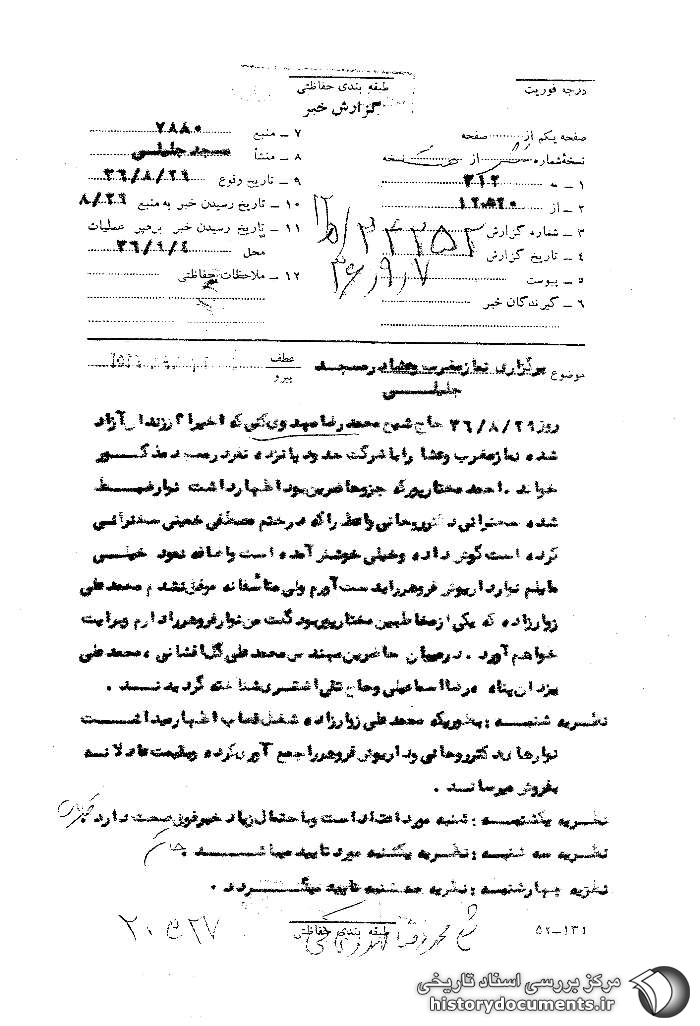 درجه فوریت
طبقه بندی حفاظتی
گزارش خبر
صفحه یکم از صفحه
نسخهٔ شماره از نسخه
۱ ـ به ۳۱۲
۲ ـ از
۳ ـ شماره گزارش ۳۴۲۵۲/
۴ ـ تاریخ گزارش ۳۶/۹/۷
۵ ـ پیوست
۶ ـ گیرندگان خبر
۷ ـ منبع ۷۸۸۰
۸ ـ منشأ مسجد جلیلی
۹ ـ تاریخ وقوع ۳۶/۸/۲۹
۱۰ ـ تاریخ رسیدن خبر به منبع ۸/۲۹
۱۱ ـ تاریخ رسیدن خبر برهبر عملیات
محل ۳۶/۹/۴
۱۲ ـ ملاحظات حفاظتی
موضوع برگزاری نماز مغرب وعشاء درمسجد
جلیلی
عطف
پیرو
روز ۳۶/۸/۲۹ حاج شیخ محمد رضا مهدوی کنی که اخیرا از زندان آزاد
شده نماز مغرب وعشا را با شرکت حدود پانزده نفر در مسجد مذکور
خواند . احمد مختارپور که جزو حاضرین بود اظهار داشت نوار ضبط
شده سخنرانی دکتر روحانی واعظ را که در ختم مصطفی خمینی سخنرانی
کرده است گوش داده وخیلی خوشش آمده است واضافه نمود خیلی
مایلم نوار داریوش فروهر را بدست آورم ولی متأسفانه موفق نشدم محمد علی
زوارزاده که یکی از مخاطبین مختارپور بود گفت من نوار فروهر را دارم وبرایت
خواهم آورد . در میان حاضرین مهندس محمد علی گل افشانی ، محمد علی
یزدان پناه ، رضا اسماعیلی وحاج تقی اشتری شناخته گردیدند .
نظریه شنبه : بطوریکه محمد علی زوارزاده شغل قصاب اظهار میداشت
نوارهای دکتر روحانی وداریوش فروهر را جمع آوری کرده وبقیمت عادلانه
بفروش میرساند .
نظریه یکشنبه : شنبه مورد اعتماد است وباحتمال زیاد خبر فوق صحت دارد .
نظریه سه شنبه : نظریه یکشنبه مورد تایید میباشد .
نظریه چهارشنبه : نظریه سه شنبه تایید میگردد .
طبقه بندی حفاظتی
شیخ محمد رضا مهدوی کنی
مرکز بررسی اسناد تاریخی
historydocuments.ir